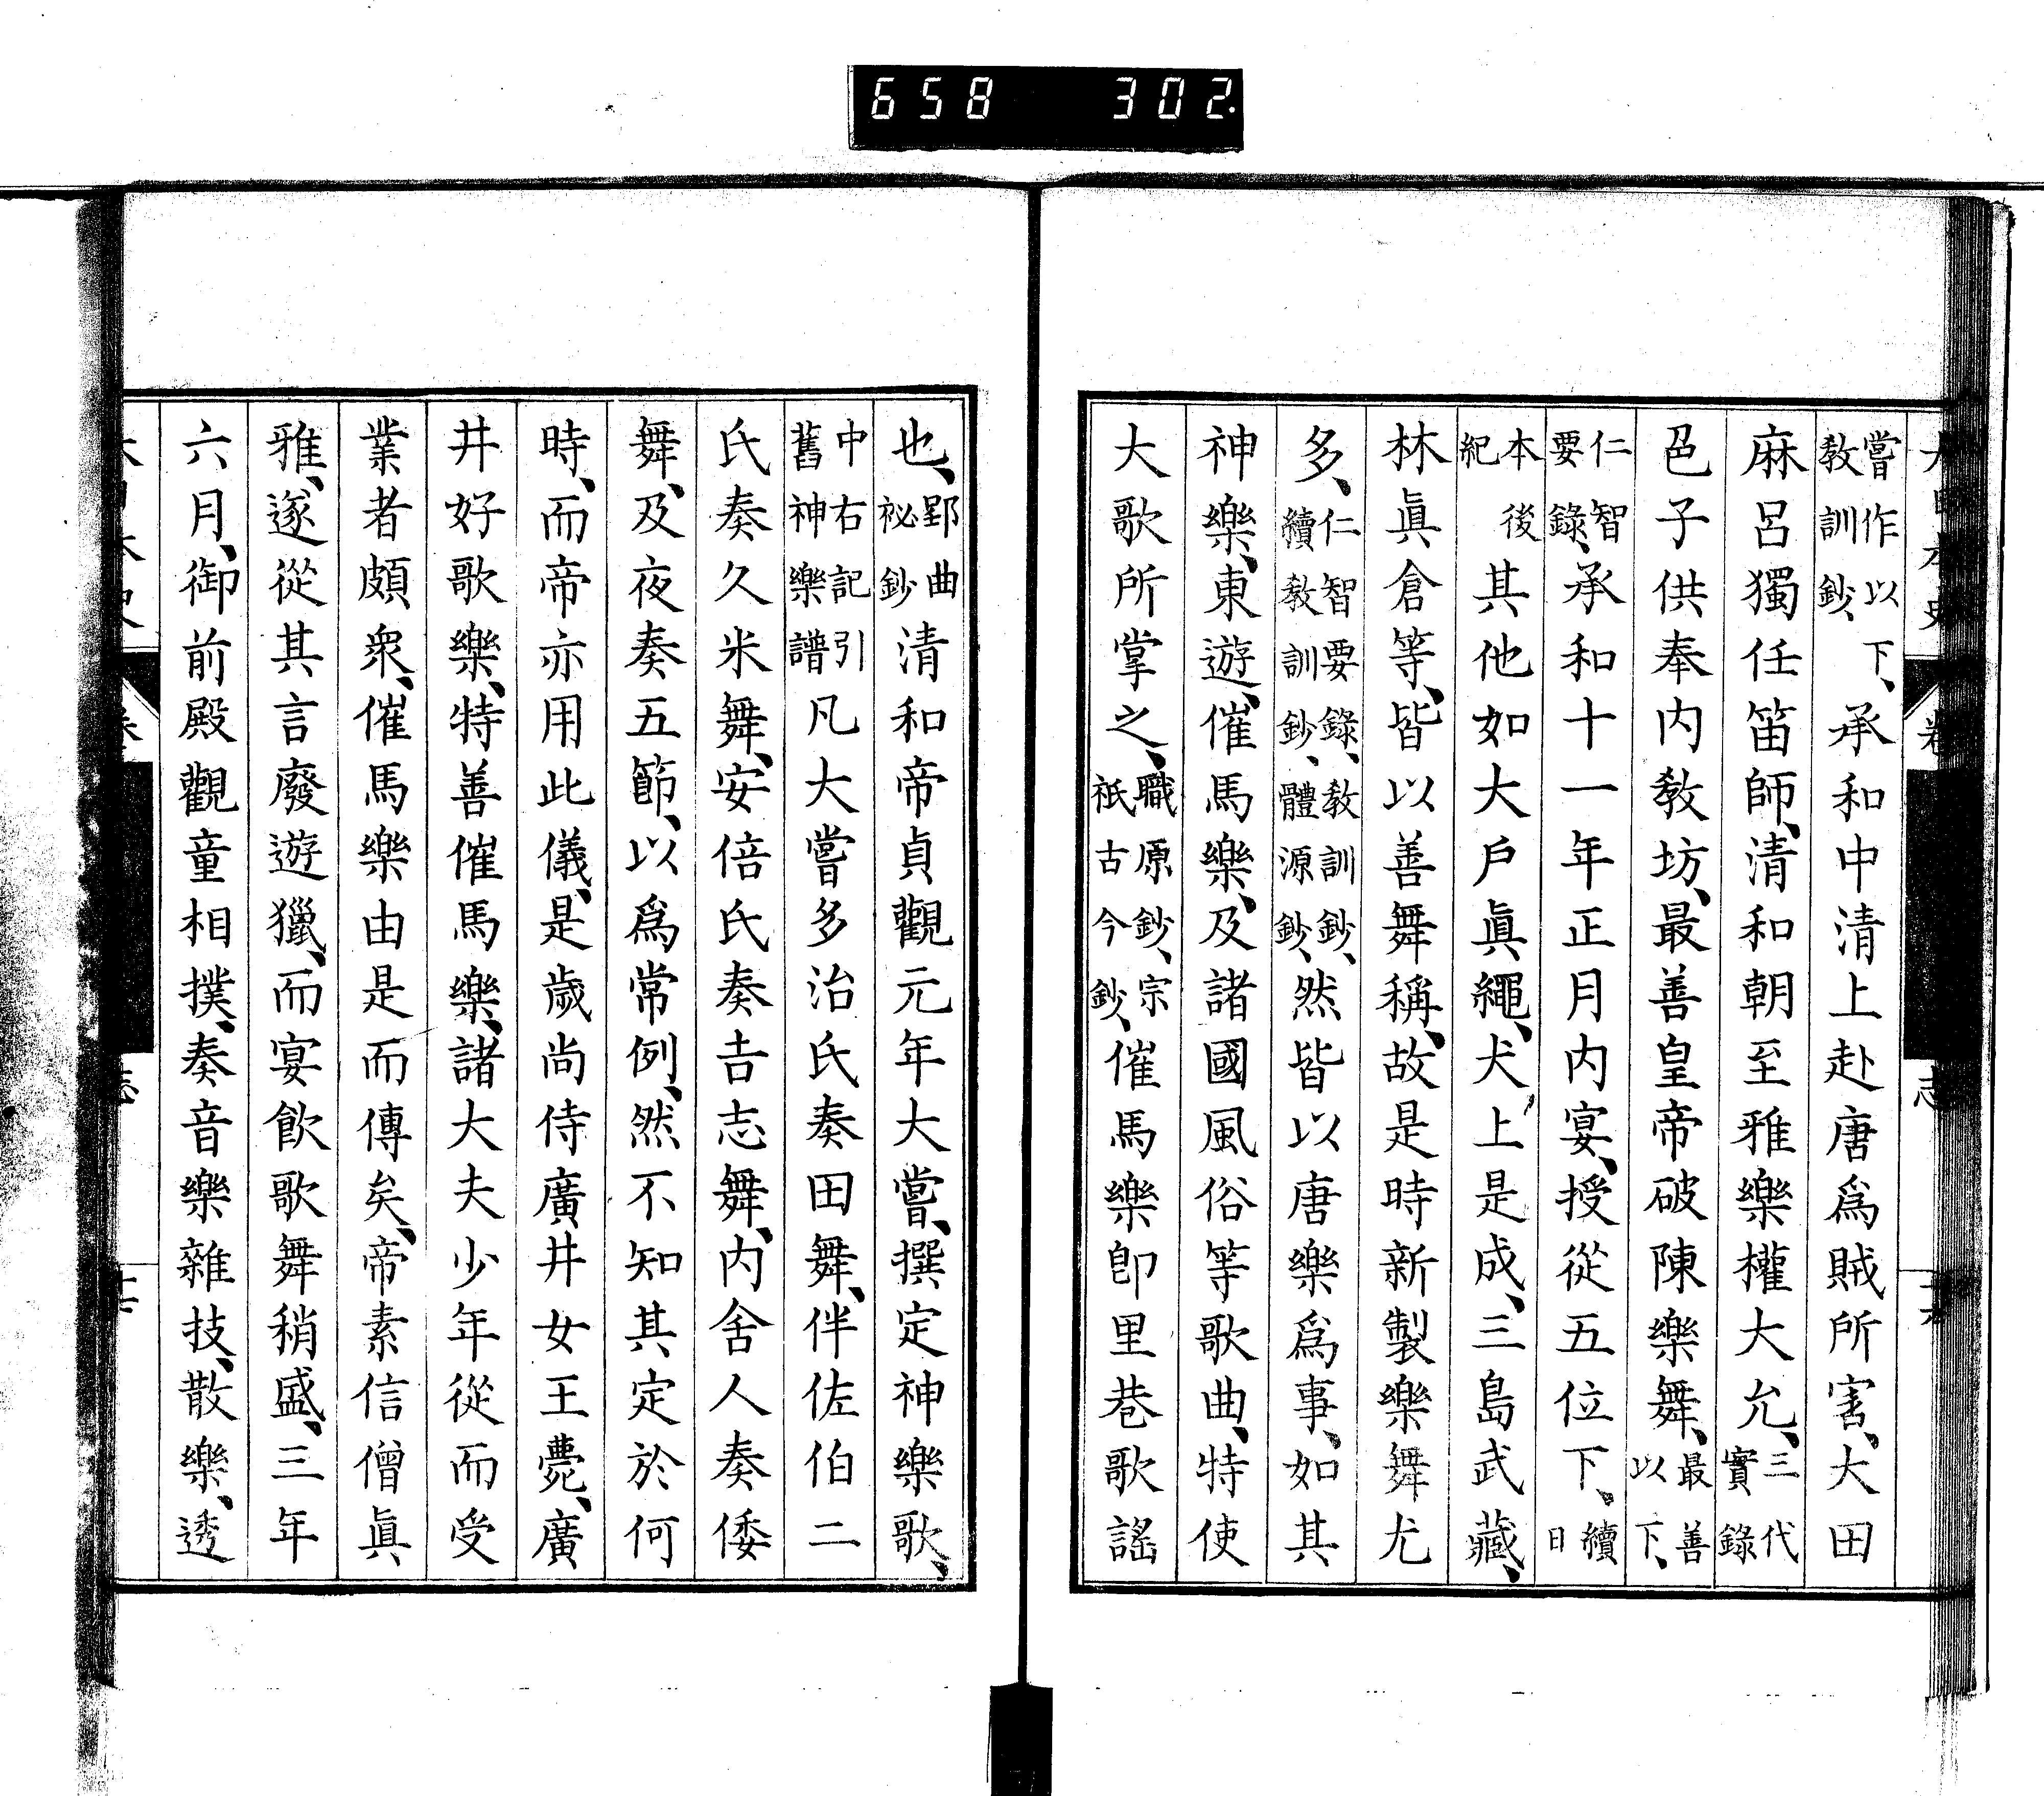 658 302
嘗作以下、
教訓鈔、
承和中清上赴唐爲賊所害、大田
麻呂獨任笛師、清和朝至雅樂權大允、
三代
實錄
邑子供奉内教坊、最善皇帝破陳樂舞、
最善
以下、
仁智
要錄、
承和十一年正月内宴、授從五位下、
續
日
本後
紀
其他如大戶眞繩、犬上是成、三島武藏、
林眞倉等、皆以善舞稱、故是時新製樂舞尤
多、
仁智要錄、教訓鈔、
續教訓鈔、體源鈔、
然皆以唐樂爲事、如其
神樂、東遊、催馬樂、及諸國風俗等歌曲、特使
大歌所掌之、
職原鈔、宗
祇古今鈔、
催馬樂卽里巷歌謠
也、
郢曲
祕鈔
清和帝貞觀元年大嘗、撰定神樂歌、
中右記引
舊神樂譜
凡大嘗多治氏奏田舞、伴佐伯二
氏奏久米舞、安倍氏奏吉志舞、内舍人奏倭
舞、及夜奏五節、以爲常例、然不知其定於何
時、而帝亦用此儀、是歲尚侍廣井女王薨、廣
井好歌樂、特善催馬樂、諸大夫少年從而受
業者頗衆、催馬樂由是而傳矣、帝素信僧眞
雅、遂從其言廢遊獵、而宴飮歌舞稍盛、三年
六月、御前殿觀童相撲、奏音樂雜技、散樂、透